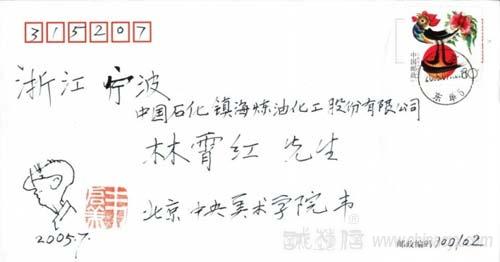 315207
中国邮政
80
浙江 宁波
中国石化镇海炼油化工股份有限公司
林霄红 先生
北京 中央美术学院 韦
2005.7.
邮政编码 100102